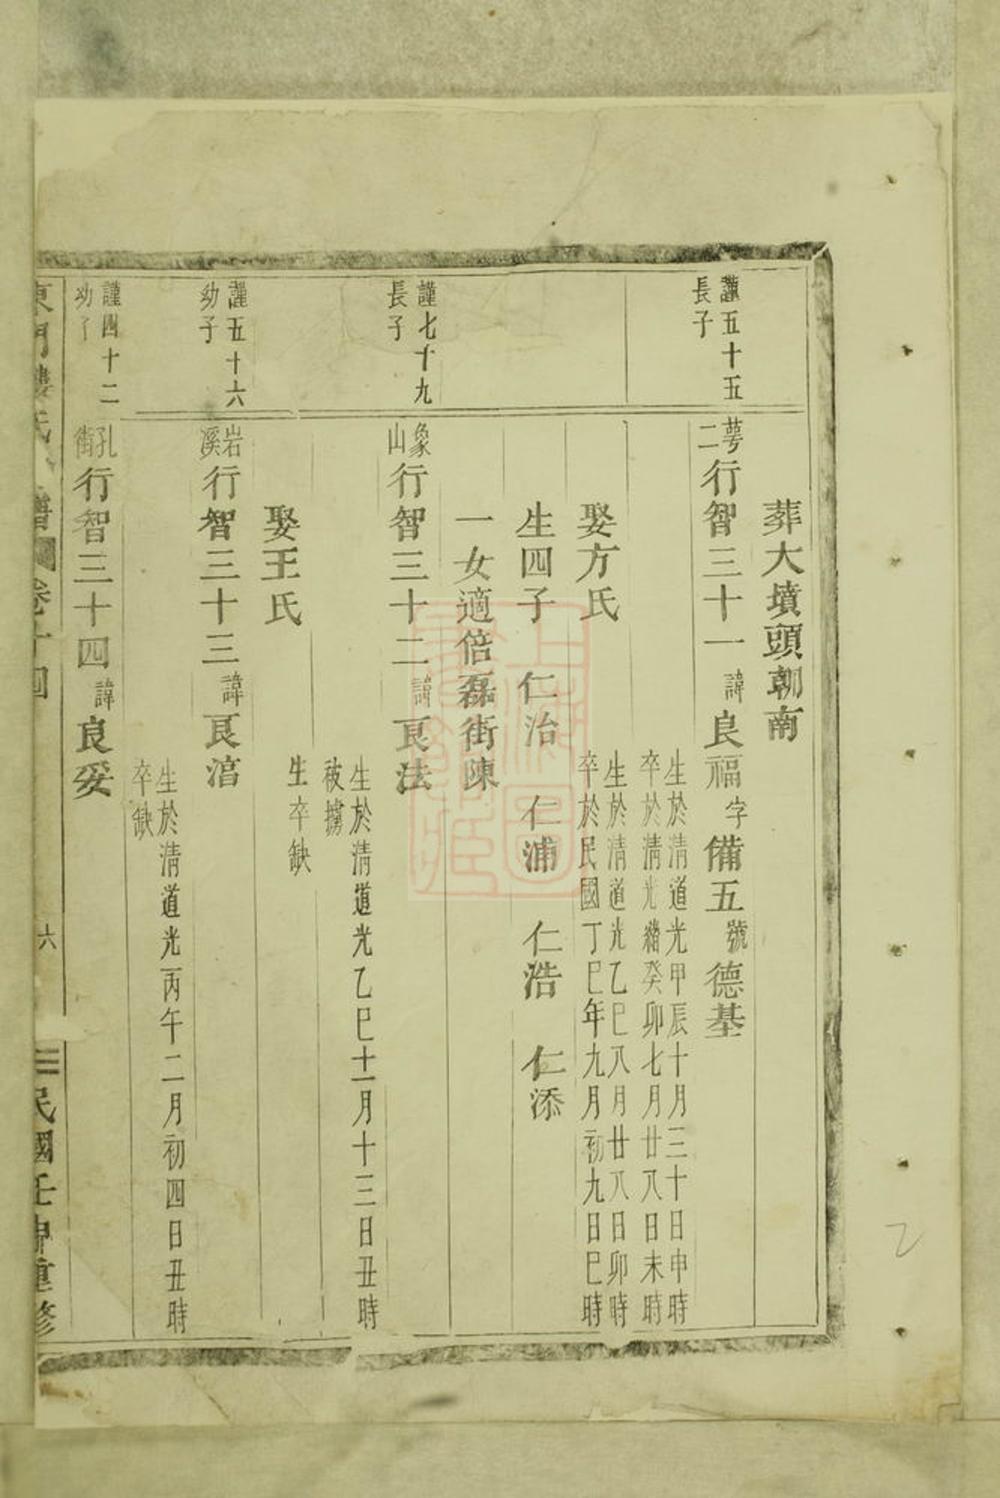 葬大墳頭朝南
謹五十五
長子
萼
二
行智三十一 諱良福字備五號德基
生於清道光甲辰十月三十日申時
卒於清光緒癸卯七月廿八日未時
娶方氏
生於清道光乙巳八月廿八日卯時
卒於民國丁巳年九月初九日巳時
生四子 仁治 仁浦 仁浩 仁添
一女適倍磊街陳
謹七十九
長子
象
山
行智三十二 諱良法
生於清道光乙巳十一月十三日丑時
被擄
娶王氏
生卒缺
謹五十六
幼子
岩
溪
行智三十三 諱良
生於清道光丙午二月初四日丑時
卒缺
謹四十二
幼子
孔
街
行智三十四 諱良妥
東門樓氏譜 卷十四
六
民國壬申重修